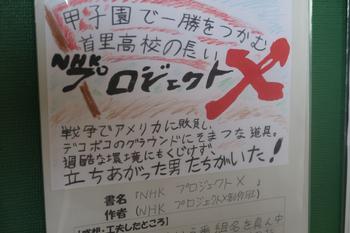 甲子園で一勝をつかむ
首里高校の長い
NHKプロジェクトX
戦争でアメリカに敗戦し、
デコボコのグラウンドにそまつな道具。
過酷な環境にもくじけず、
立ちあがった男たちがいた！
書名「NHK プロジェクトX 」
作者（NHK プロジェクトX制作班）
【感想・工夫したところ】
番組名を真ん中